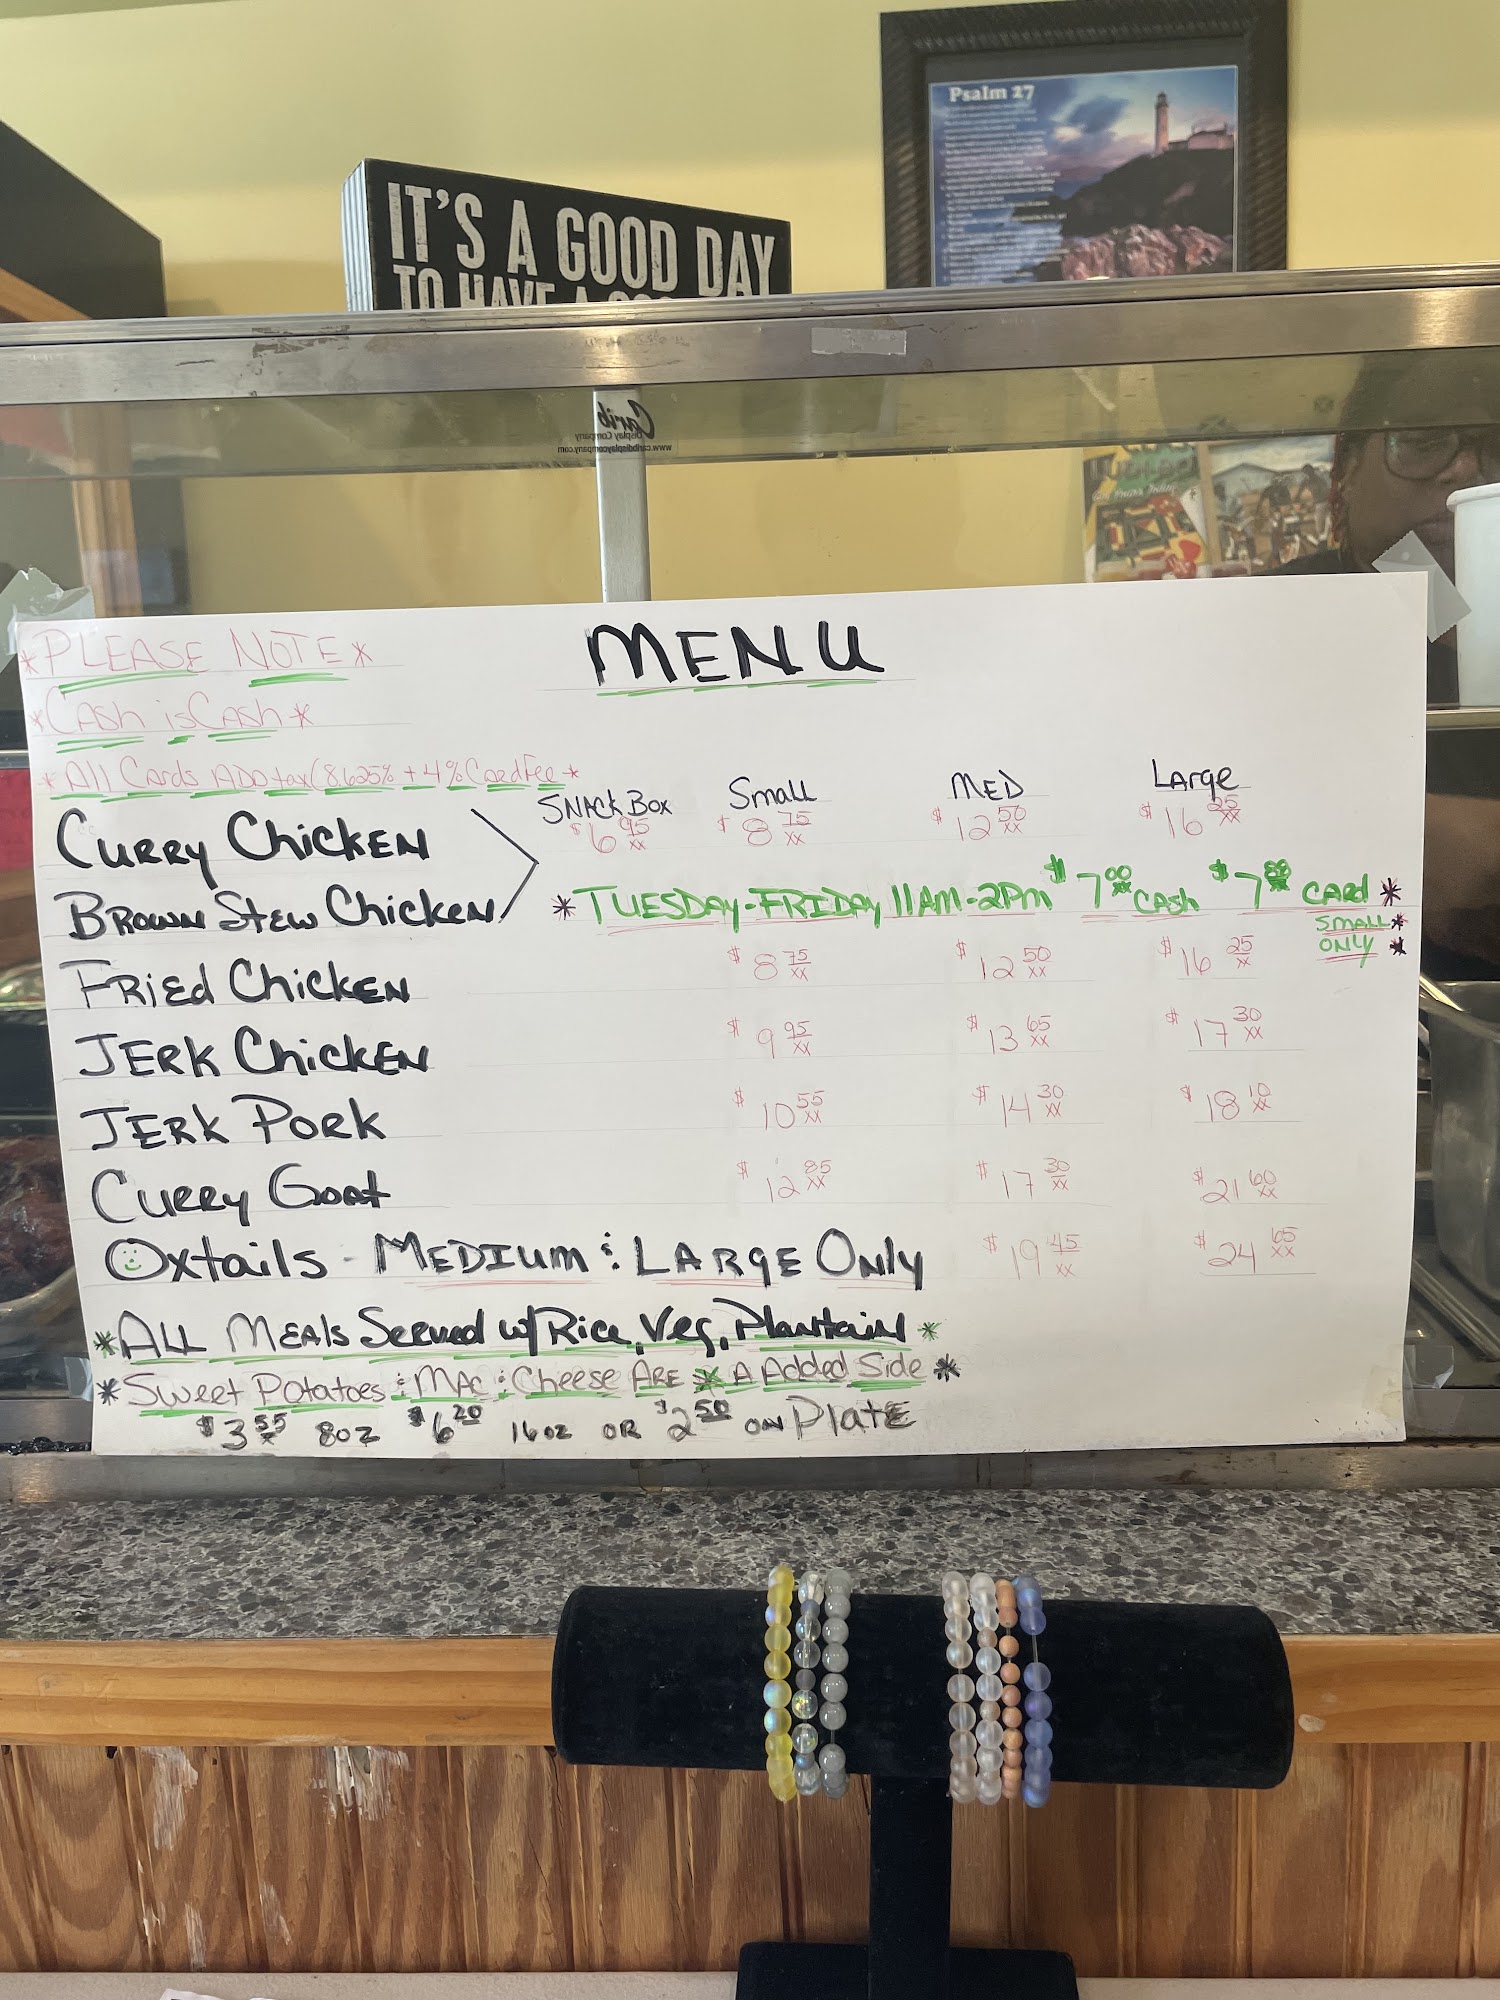 Psalm 27
IT'S A GOOD DAY
TO HAVE A
Carib
Display Company
www.caribdisplaycompany.com
*PLEASE NOTE*
MENU
*CASH is CASH*
*All Cards ADD tax (8.625% + 4% Card Fee*
SNACK BOX Small MED Large
CURRY ChickEN $6 95/xx $8 75/xx $12 50/xx $16 25/xx
BROWN STEW ChickEN *TUESDAY-FRIDAY 11AM-2PM $7 00/xx CASH $7 89 CARD*
SMALL*
ONLY*
FRiEd ChickEN $8 75/xx $12 50/xx $16 25/xx
JERK ChickEN $9 95/xx $13 65/xx $17 30/xx
JERK PORK $10 55/xx $14 30/xx $18 10/xx
CURRY GOAt $12 85/xx $17 30/xx $21 60/xx
Oxtails - MEDIUM & LARGE ONLY $19 45/xx $24 65/xx
*ALL MEAls SERVED w/Rice, Veg, Plantain*
*SWEET POTATOES & MAC & CHEESE ARE A Added Side*
$3 55/x 8oz $6 20 16oz OR $2 50 ON PlatE